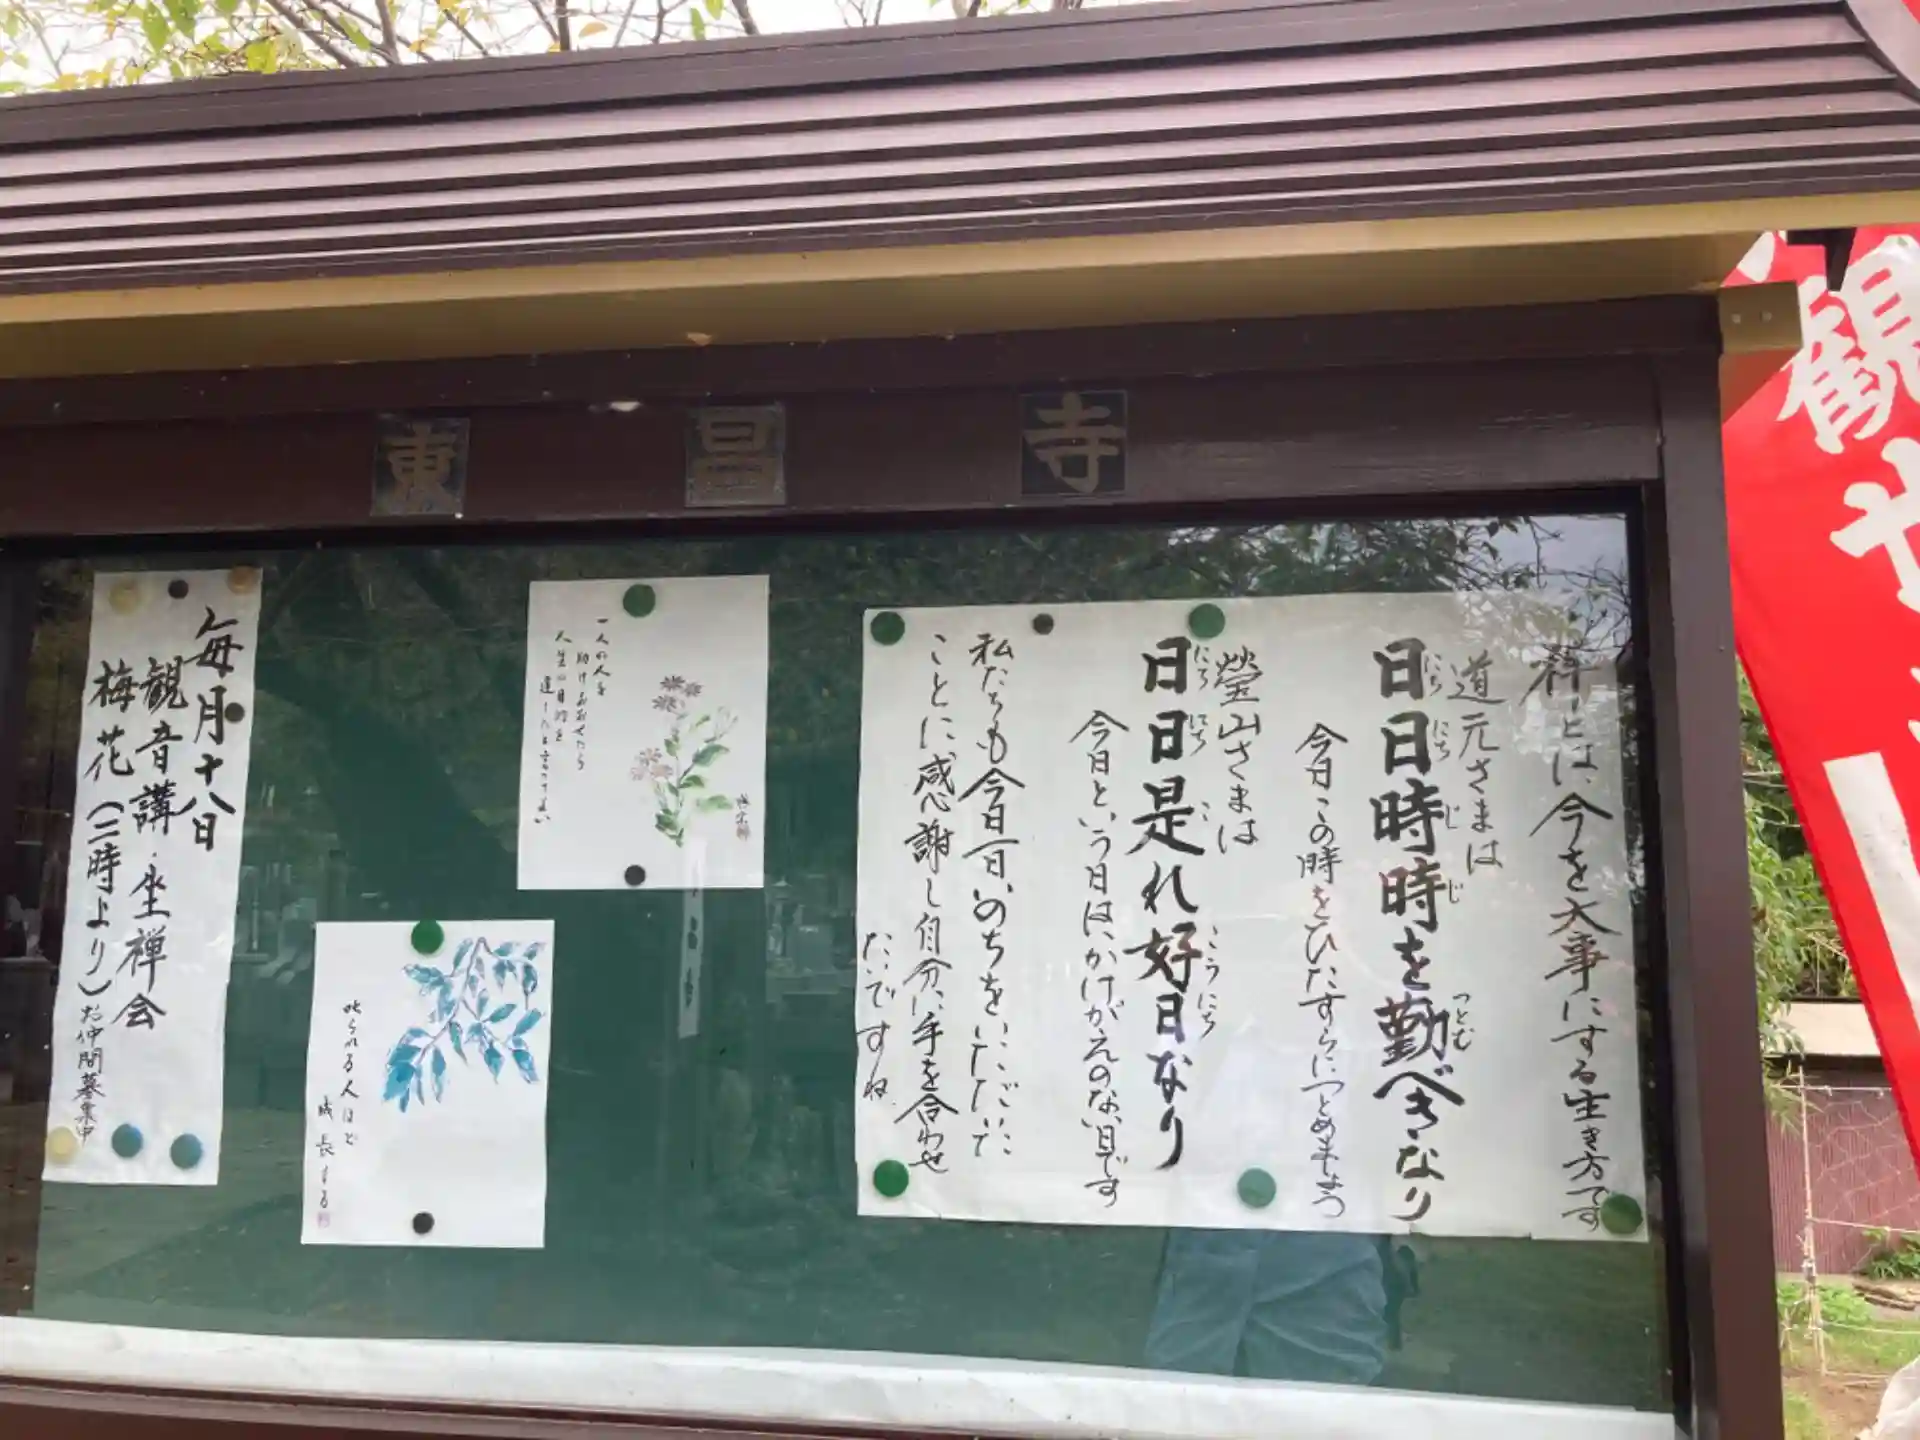 東昌寺
禅とは、今を大事にする生き方です
道元さまは
日日時時を勤べきなり
にちにちじじ
つとむ
今日この時をひたすらにつとめましょう
瑩山さまは
日日是れ好日なり
にちにちこ
こうにち
今日という日はかけがえのない日です
私たちも今日一日、いのちをいただいた
ことに感謝し自分に手を合わせ
たいですね
一人の人を
助けおおせたら
人生の目的を
達したと言ってよい
叱られる人ほど
成長する
毎月十八日
観音講・坐禅会
梅花(二時より)お仲間募集中
観世